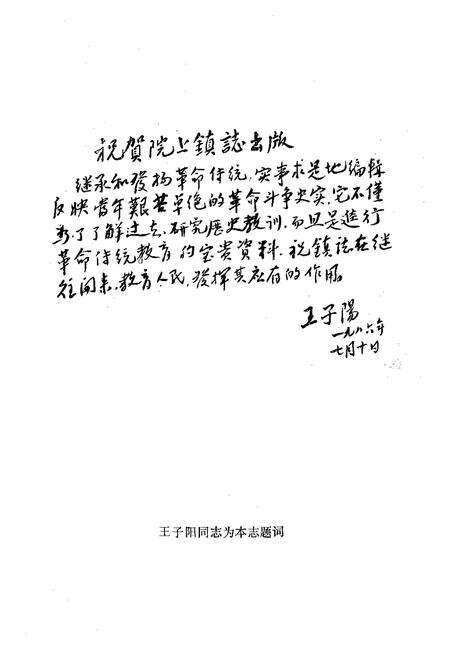 祝賀院上鎮誌出版
继承和發揚革命傳统，实事求是地编輯
反映當年艱苦卓绝的革命斗争史实，它不僅
为了了解过去，研究歷史教训，而且是進行
革命传统教育的宝贵資料。祝鎮誌在继
往闻来，教育人民，發揮其应有的作用。
王子陽
一九八六年
七月十日
王子阳同志为本志题词